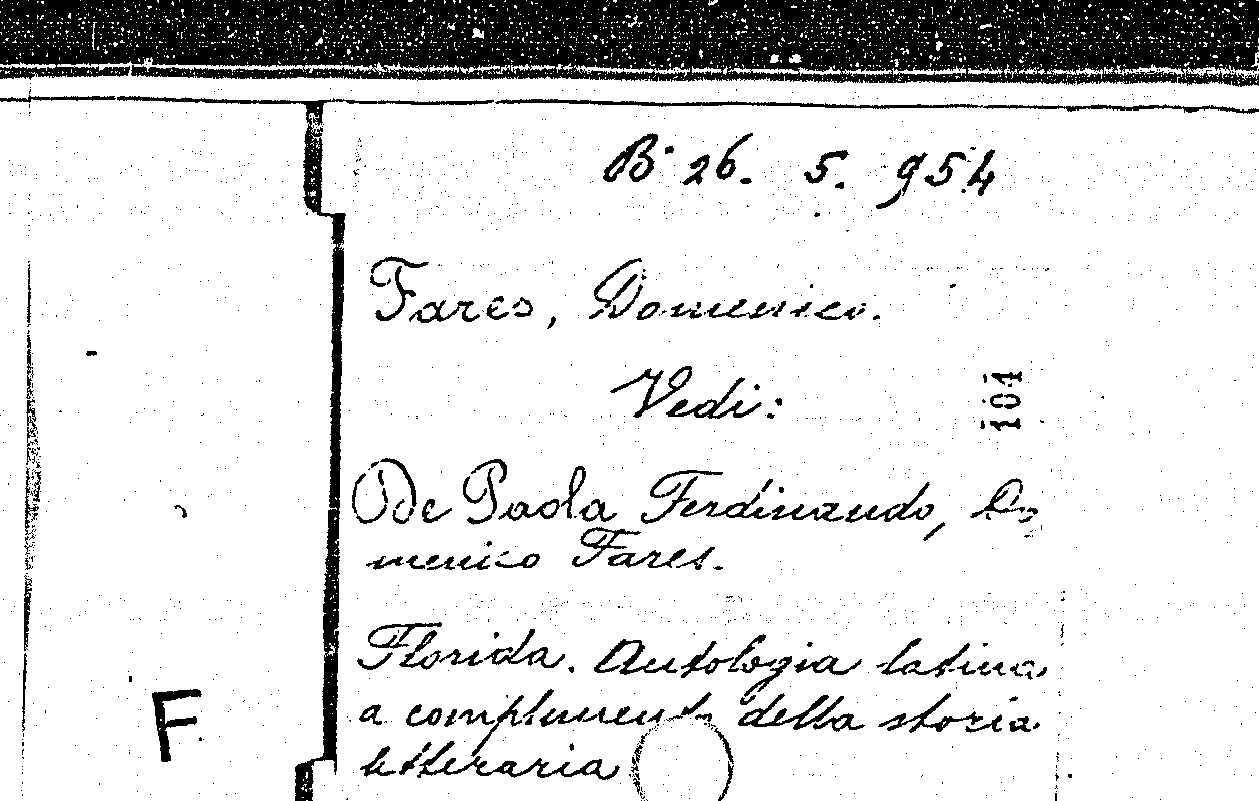 B 26. 5. 954
Fares, Domenico.
Vedi:
104
De Paola Ferdinando, Do
menico Fares.
Florida. Antologia latina
a complimento della storia
letteraria
F